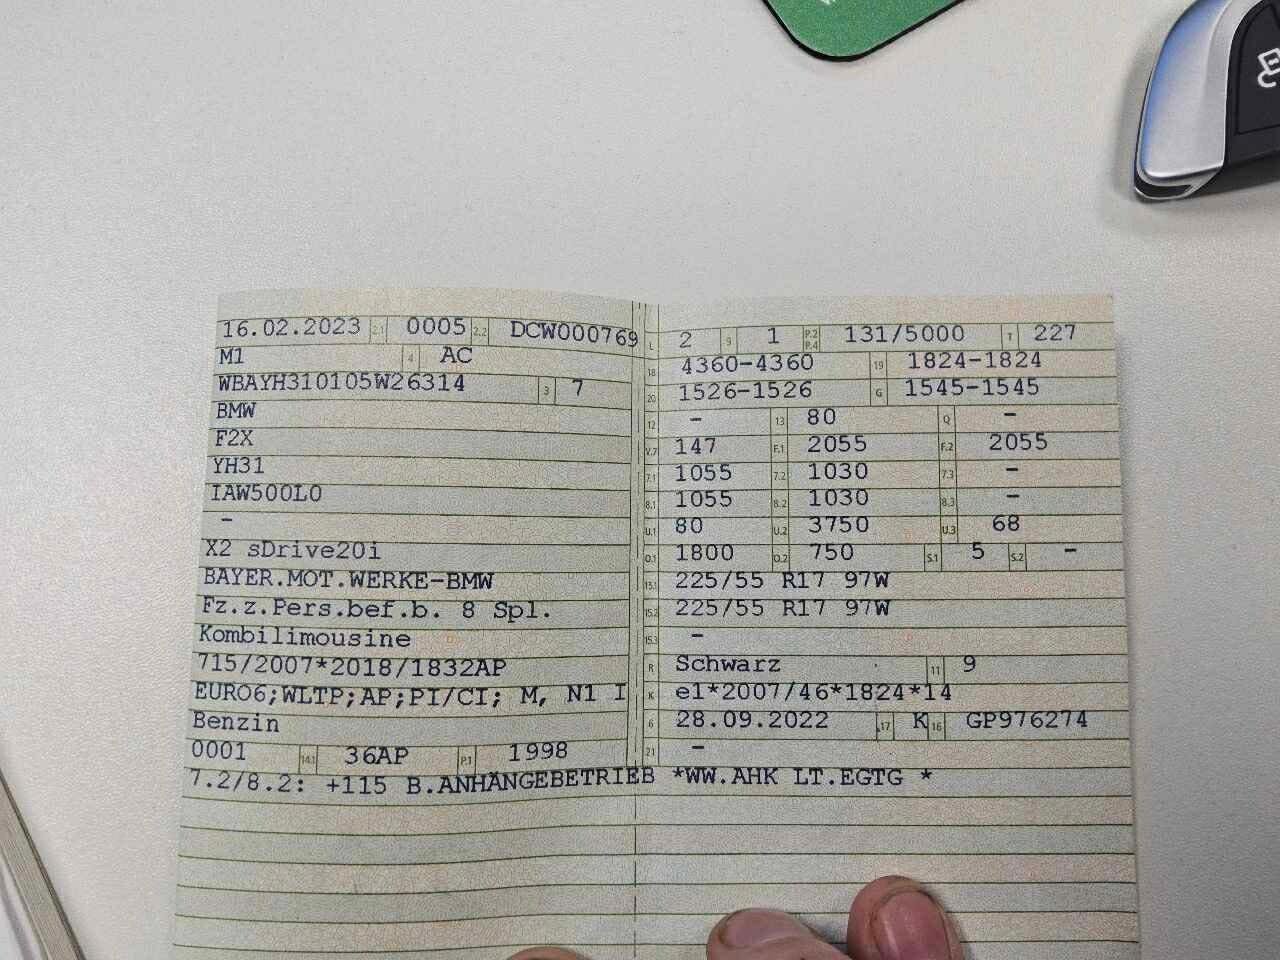 16.02.2023 2.1 0005 2.2 DCW000769
M1 4 AC
WBAYH310105W26314 3 7
BMW
F2X
YH31
IAW500L0
-
X2 sDrive20i
BAYER.MOT.WERKE-BMW
Fz.z.Pers.bef.b. 8 Spl.
Kombilimousine
715/2007*2018/1832AP
EURO6;WLTP;AP;PI/CI; M, N1 I
Benzin
0001 14.1 36AP P.1 1998
L 2 9 1 P.2 P.4 131/5000 T 227
18 4360-4360 19 1824-1824
20 1526-1526 G 1545-1545
12 - 13 80 Q -
V.7 147 F.1 2055 F.2 2055
7.1 1055 7.2 1030 7.3 -
8.1 1055 8.2 1030 8.3 -
U.1 80 U.2 3750 U.3 68
O.1 1800 O.2 750 S.1 5 S.2 -
15.1 225/55 R17 97W
15.2 225/55 R17 97W
15.3 -
R Schwarz 11 9
K e1*2007/46*1824*14
6 28.09.2022 17 K 16 GP976274
21 -
7.2/8.2: +115 B.ANHÄNGEBETRIEB *WW.AHK LT.EGTG *